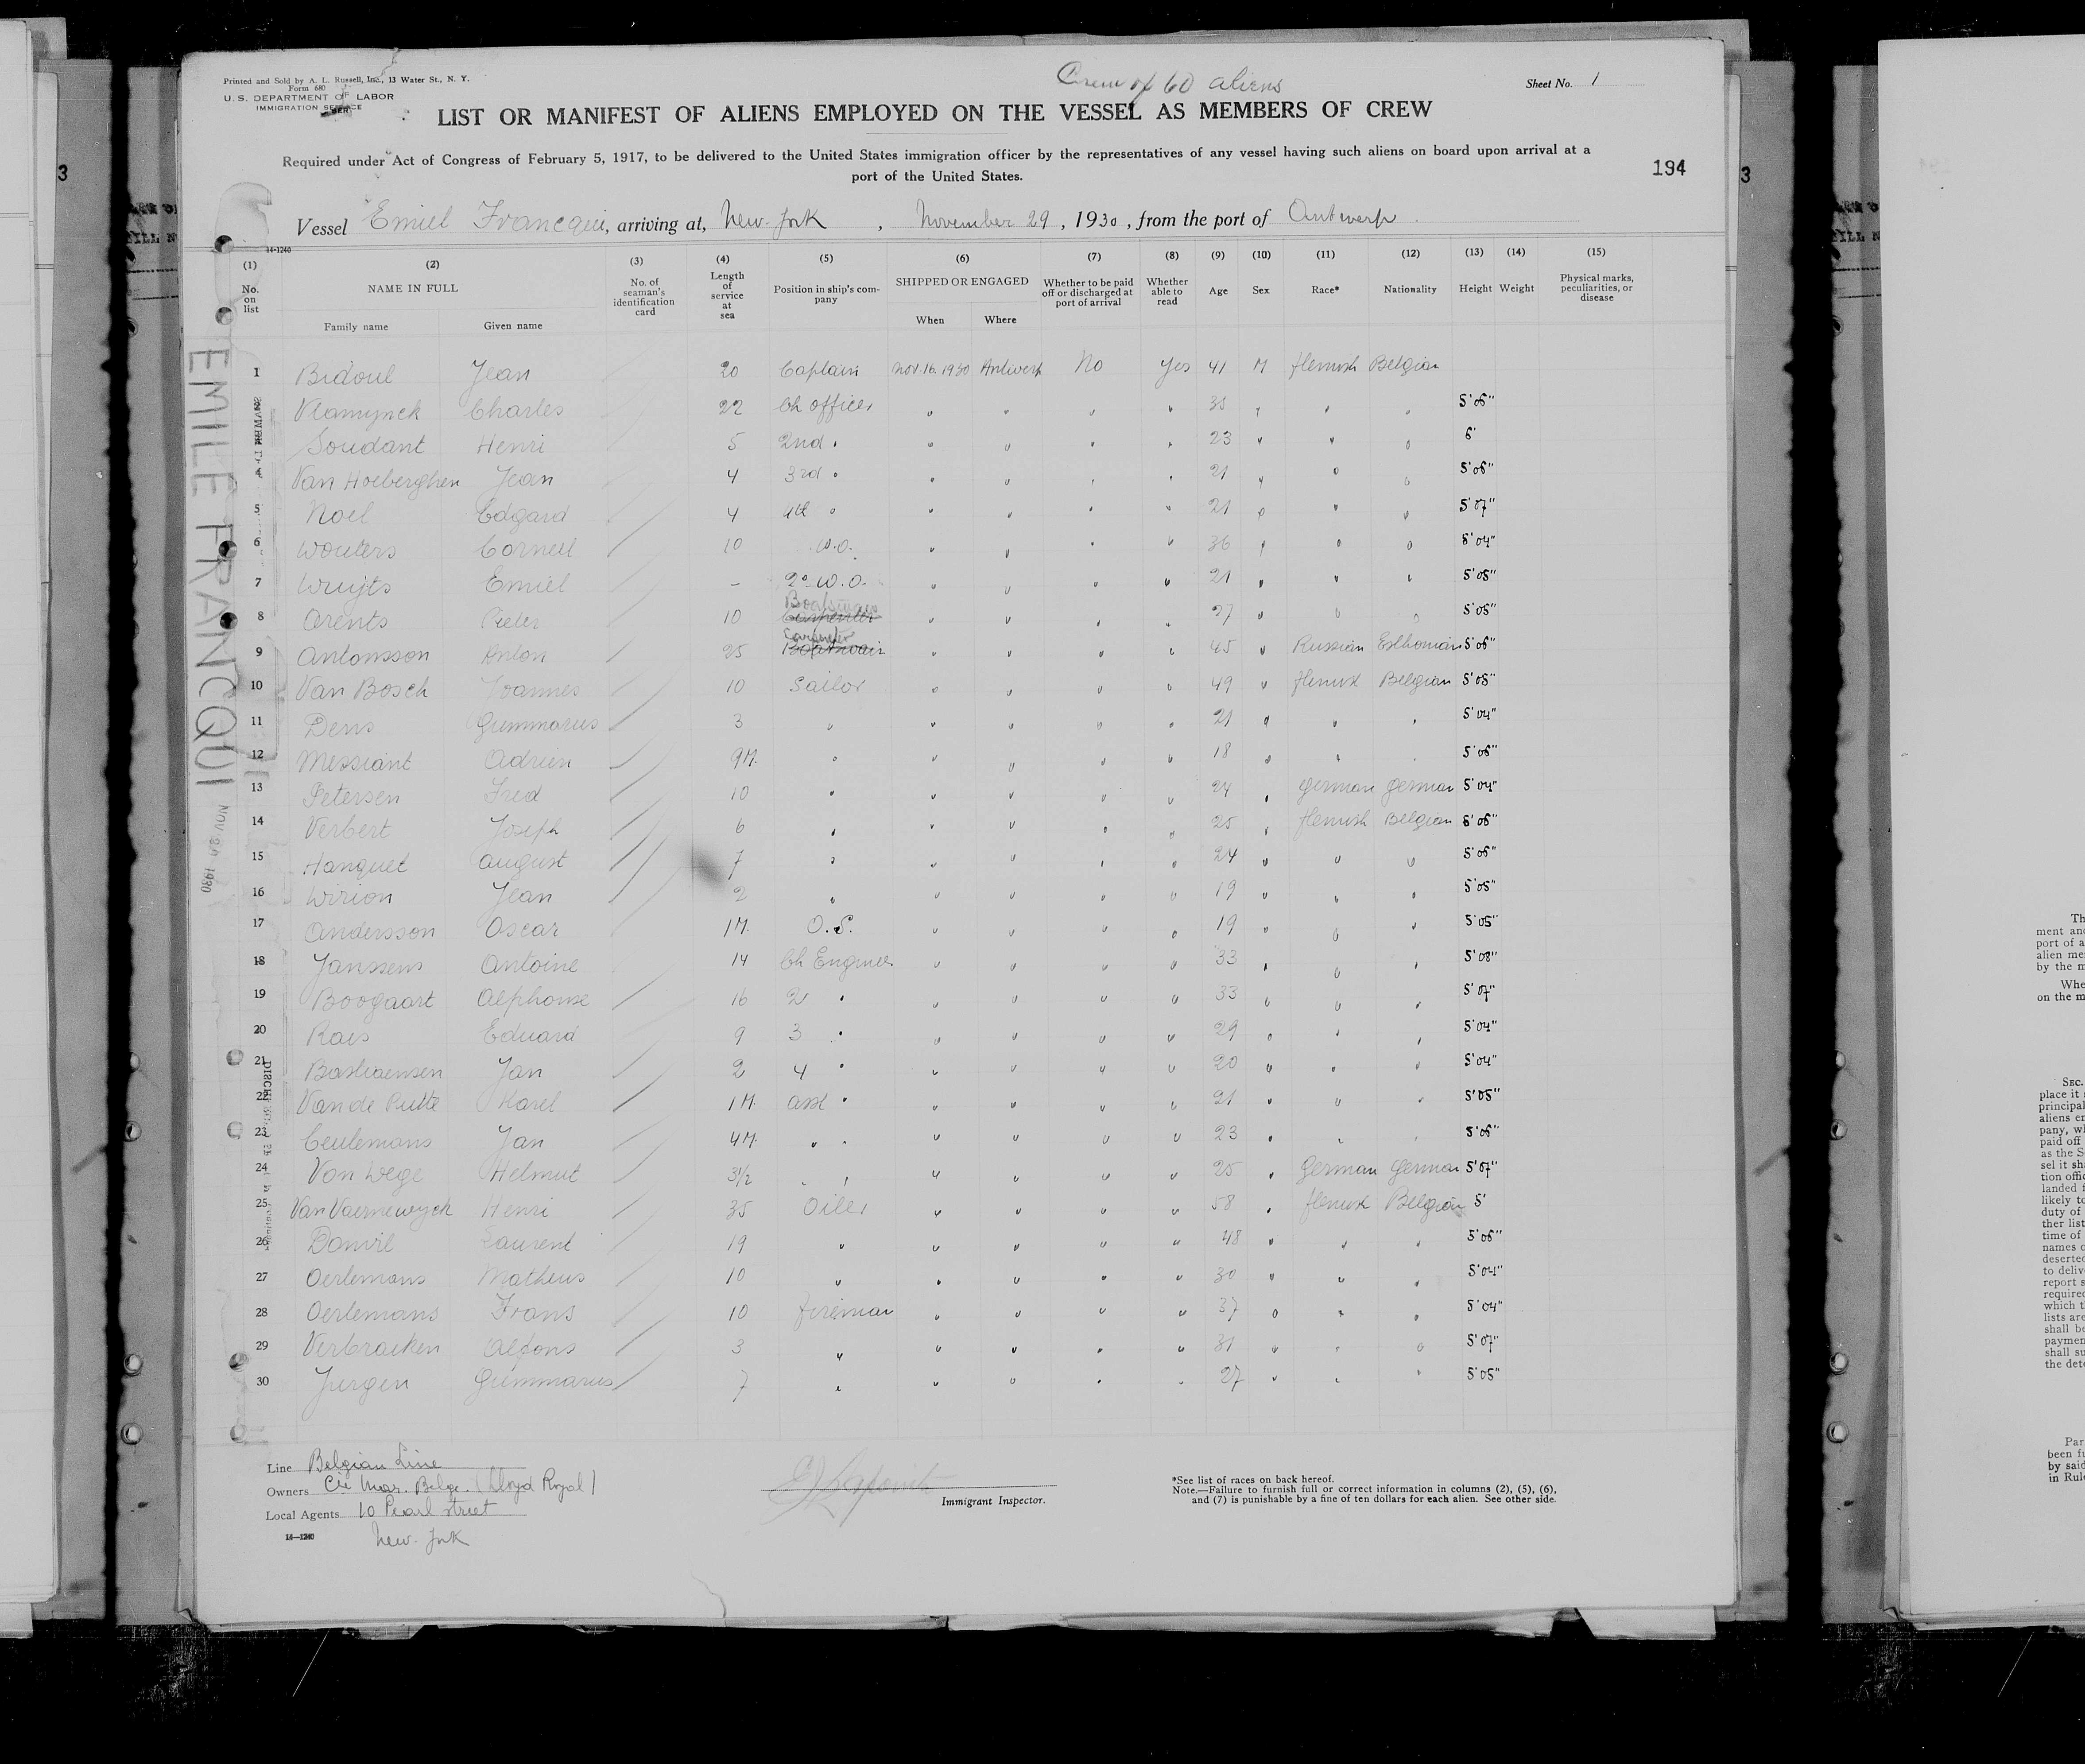 Printed and Sold by A. L. Russell, Inc., 13 Water St., N. Y.
Form 680
U. S. DEPARTMENT OF LABOR
IMMIGRATION SERVICE
Crew of 60 aliens
Sheet No. 1
LIST OR MANIFEST OF ALIENS EMPLOYED ON THE VESSEL AS MEMBERS OF CREW
Required under Act of Congress of February 5, 1917, to be delivered to the United States immigration officer by the representatives of any vessel having such aliens on board upon arrival at a
port of the United States.
194
3
3
Vessel Emiel Francqui, arriving at, New-York, November 29, 1930, from the port of Antwerp.
14-1240
(1) (2) (3) (4) (5) (6) (7) (8) (9) (10) (11) (12) (13) (14) (15)
No. on list NAME IN FULL No. of seaman's identification card Length of service at sea Position in ship's company SHIPPED OR ENGAGED Whether to be paid off or discharged at port of arrival Whether able to read Age Sex Race* Nationality Height Weight Physical marks, peculiarities, or disease
Family name Given name When Where
1 Bidoul Jean 20 Captain Nov. 16. 1930 Antwerp No Yes 41 M flemish Belgian
Vlamynck Charles 22 Ch officer " " " " 35 " " " 5'06"
Soudant Henri 5 2nd " " " " " 23 " " " 6'
4 Van Hoeberghen Jean 4 3rd " " " " " 21 " " " 5'06"
5 Noel Edgard 4 4th " " " " " 21 " " " 5'07"
6 Wouters Corneel 10 W.O. " " " " 36 " " " 5'04"
7 Wuyts Emiel - 2º W.O. " " " " 21 " " " 5'05"
8 Arents Pieter 10 Boatswain Carpenter " " " " 27 " " " 5'05"
9 Antonsson Anton 25 Carpenter Boatswain " " " " 45 " Russian Esthonian 5'06"
10 Van Bosch Joannes 10 Sailor " " " " 49 " flemish Belgian 5'05"
11 Dens Gummarus 3 " " " " " 21 " " " 5'04"
12 Messiant Adrien 9M. " " " " " 18 " " " 5'06"
13 Petersen Fred 10 " " " " " 24 " german german 5'04"
14 Verbert Joseph 6 " " " " " 25 " flemish Belgian 5'06"
15 Hanquet August 7 " " " " " 24 " " " 5'06"
16 Wirion Jean 2 " " " " " 19 " " " 5'05"
17 Andersson Oscar 1M. O.S. " " " " 19 " " " 5'05"
18 Janssens Antoine 14 Ch Engineer " " " " 33 " " " 5'08"
19 Boogaart Alphonse 16 2 " " " " " 33 " " " 5'07"
20 Rais Eduard 9 3 " " " " " 29 " " " 5'04"
21 Bastiaensen Jan 2 4 " " " " " 20 " " " 5'04"
22 Van de Putte Karel 1M asst " " " " " 21 " " " 5'05"
23 Ceulemans Jan 4M. " " " " " " 23 " " " 5'06"
24 Von Wege Helmut 3½ " " " " " " 25 " German German 5'07"
25 Van Vaernewyck Henri 35 Oiler " " " " 58 " flemish Belgian 5'
26 Danvil Laurent 19 " " " " " 48 " " " 5'06"
27 Oerlemans Matheus 10 " " " " " 30 " " " 5'04"
28 Oerlemans Frans 10 fireman " " " " 37 " " " 5'04"
29 Verbraeken Alfons 3 " " " " " 31 " " " 5'07"
30 Jurgen Gummarus 7 " " " " " 27 " " " 5'05"
EMILE FRANCQUI
NOV 29 1930
Line Belgian Line
Owners Cie Mar. Belge. (Lloyd Royal)
Local Agents 10 Pearl street
New-York
14-1240
Immigrant Inspector.
*See list of races on back hereof.
Note.—Failure to furnish full or correct information in columns (2), (5), (6),
and (7) is punishable by a fine of ten dollars for each alien. See other side.